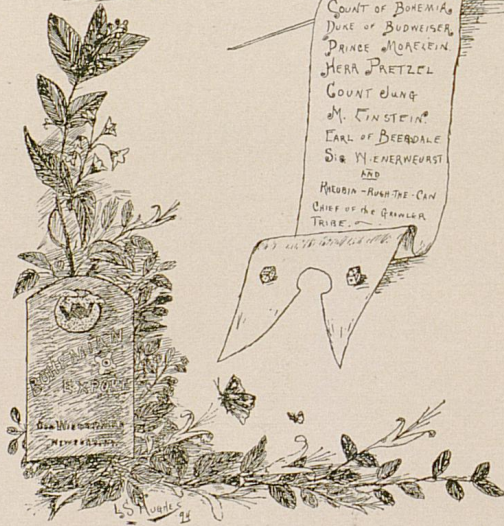 COUNT OF BOHEMIA.
DUKE OF BUDWEISER
PRINCE MORELEIN.
HERR PRETZEL
COUNT JUNG
M. EINSTEIN.
EARL OF BEERDALE
SIR W-ENERWEURST
AND
RHCOBIA-RUSH-THE-CAN
CHIEF OF the GROWLER
TRIBE.
BOHEMIAN
EXPORT
GEO. WIEDEMANN
NEWPORT, KY.
L.S. HUGHES
94